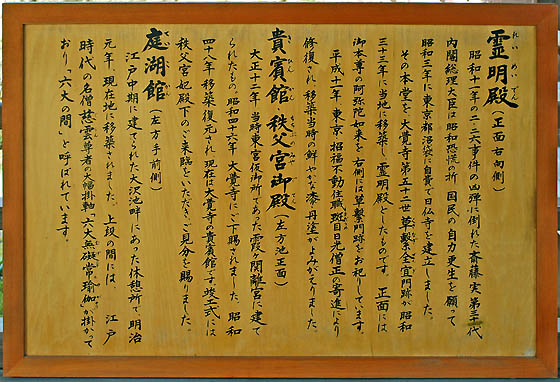 靈明殿（正面右向側）
れいめいでん
昭和十一年の二・二六事件の凶弾に倒れた斎藤実第三十代
内閣総理大臣は昭和恐慌の折 国民の自力更生を願って
昭和三年に東京都沼袋に自費で日仏寺を建立しました。
その本堂を、大覚寺第五十二世草繋全宜門跡が昭和
三十三年に当地に移築し霊明殿としたものです。正面には
御本尊の阿弥陀如来を右側には草繋門跡をお祀りしています。
平成十一年、東京、招福不動住職斑目日光僧正の寄進により
修復され、移築当時の鮮やかな漆丹塗がよみがえりました。
貴賓館 秩父宮御殿（左方池正面）
きひんかん ちちぶのみやごてん
大正十二年、当時東宮仮御所であった霞ヶ関離宮に建て
られたもの。昭和四十六年、大覚寺にご下賜されました。昭和
四十八年移築復元され、現在は大覚寺の貴賓館です。竣工式には
秩父宮妃殿下のご来臨をいただき、ご見分を賜りました。
庭湖館（左方手前側）
ていこかん
江戸中期に建てられた大沢池畔にあった休憩所で、明治
元年、現在地に移築されました。上段の間には、江戸
時代の名僧慈雲尊者の大幅掛軸「六大無礙常瑜伽」が掛かって
おり「六大の間」と呼ばれています。